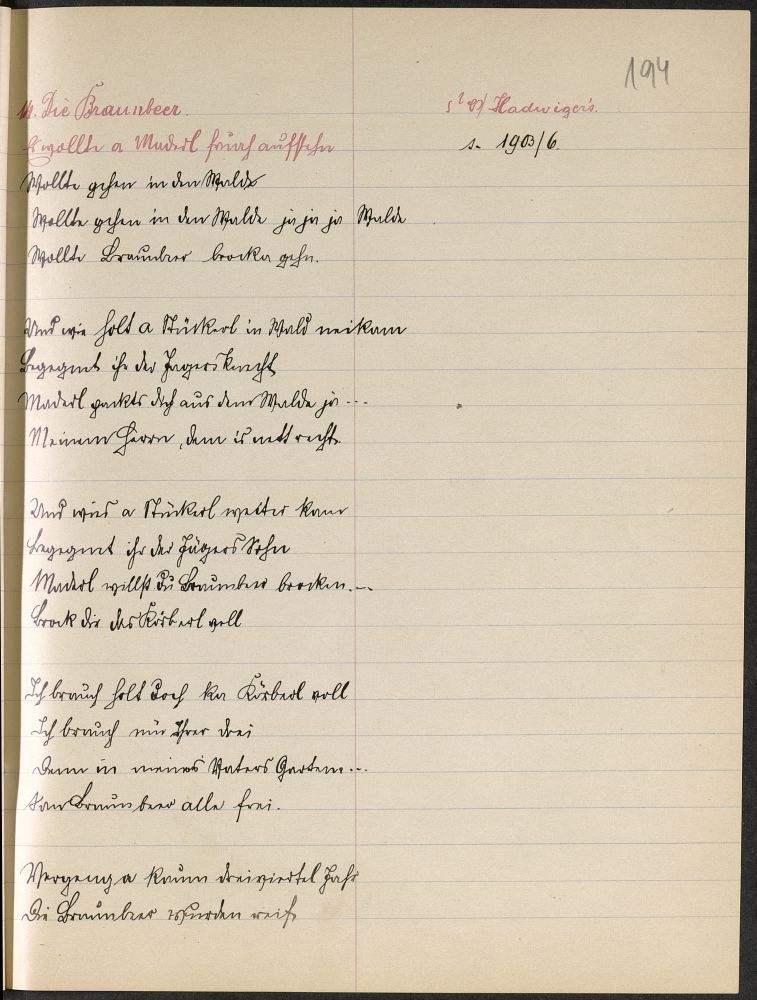 194
14. Die Braunbeer.
Hadwigers.
s. 1903/6.
Es wollte a Maderl früah aufstehn
Wollte gehen in den Walde
Wollte gehen in den Walde ja ja ja Walde
Wollte Braunbeer brocka gehn.
Und wie holt a Stückerl in Wald neikam
Begegnet ihr der Jagersknecht
Maderl packts dich aus dem Walde ja ---
Meinem Herrn, dem is nett recht.
Und wies a Stückerl weiter kam
begegnet ihr der Jägers Sohn
Maderl willst du Braunbeer brocken. ---
Brock dir das Körberl voll
Ich brauch holt doch ka Körberl voll
Ich brauch nur Ihrer drei
Denn in meines Vaters Garten ---
San Braunbeer alle frei.
Vergeng a kaum dreiviertel Jahr
Die Braunbeer wurden reif